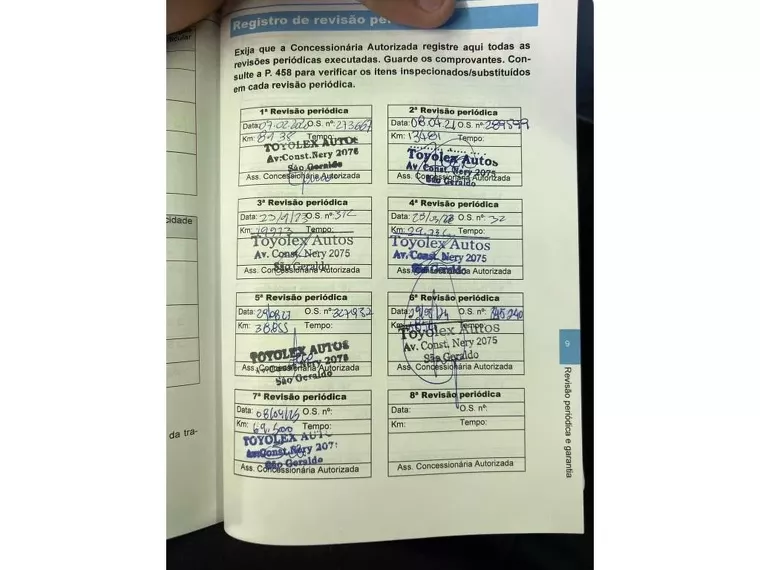 Registro de revisão pe
Exija que a Concessionária Autorizada registre aqui todas as
revisões periódicas executadas. Guarde os comprovantes. Con-
sulte a P. 458 para verificar os itens inspecionados/substituídos
em cada revisão periódica.
1ª Revisão periódica
Data: 07.02.2020 O.S. nº:
Km: Tempo:
TOYOLEX AUTOS
Av. Const. Nery 2075
São Geraldo
Ass. Concessionária Autorizada
2ª Revisão periódica
Data: 08.04.21 O.S. nº:
Km: 13481 Tempo:
Toyolex Autos
Av. Const. Nery 2075
São Geraldo
Ass. Concessionária Autorizada
3ª Revisão periódica
Data: O.S. nº: 312
Km: Tempo:
Toyolex Autos
Av. Const. Nery 2075
São Geraldo
Ass. Concessionária Autorizada
4ª Revisão periódica
Data: O.S. nº: 32
Km: Tempo:
Toyolex Autos
Av. Const. Nery 2075
São Geraldo
Ass. Concessionária Autorizada
5ª Revisão periódica
Data: O.S. nº:
Km: Tempo:
TOYOLEX AUTOS
Av. Const. Nery 2075
São Geraldo
Ass. Concessionária Autorizada
6ª Revisão periódica
Data: O.S. nº:
Km: Tempo:
Toyolex Autos
Av. Const, Nery 2075
São Geraldo
Ass. Concessionária Autorizada
7ª Revisão periódica
Data: 08/04/25 O.S. nº:
Km: 69.500 Tempo:
TOYOLEX AUT
Av. Const. Nery 207
São Geraldo
Ass. Concessionária Autorizada
8ª Revisão periódica
Data: O.S. nº:
Km: Tempo:
Ass. Concessionária Autorizada
9
Revisão periódica e garantia
cidade
da tra-